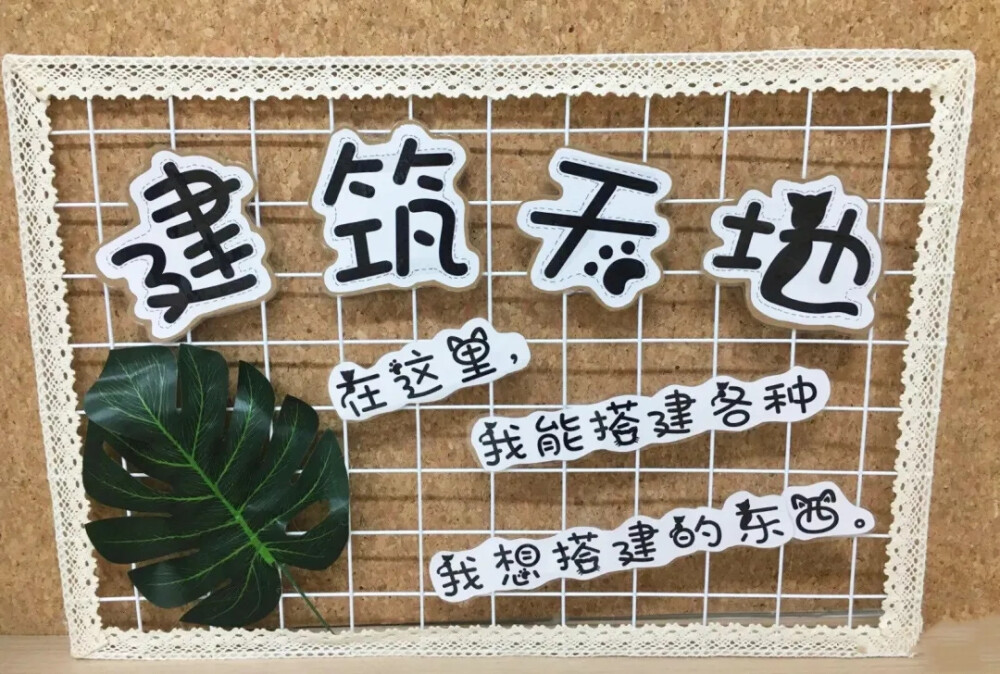 建筑天地
在这里,
我能搭建各种
我想搭建的东西。